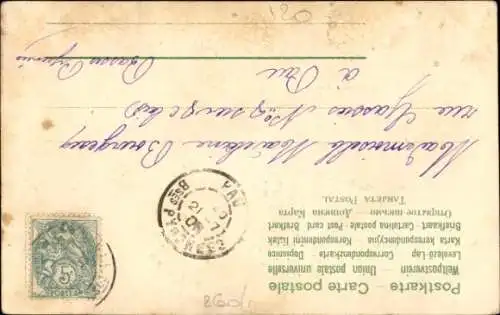 Postkarte – Carte postale
Weltpostverein — Union postale universelle
Levelező-Lap — Correspondenzkarte — Dopisnice
Karta korespondencyjna — Korespondenční lístek
Brevkaart — Cartolina postale — Post card — Brefkort
Открытое письмо — Дописна Карта
TARJETA POSTAL
Mademoiselle Bourgeoy
rue Gassies
à Pau
Basses Pyrénées
PAU
21
Bses PYRENEES
5c
120